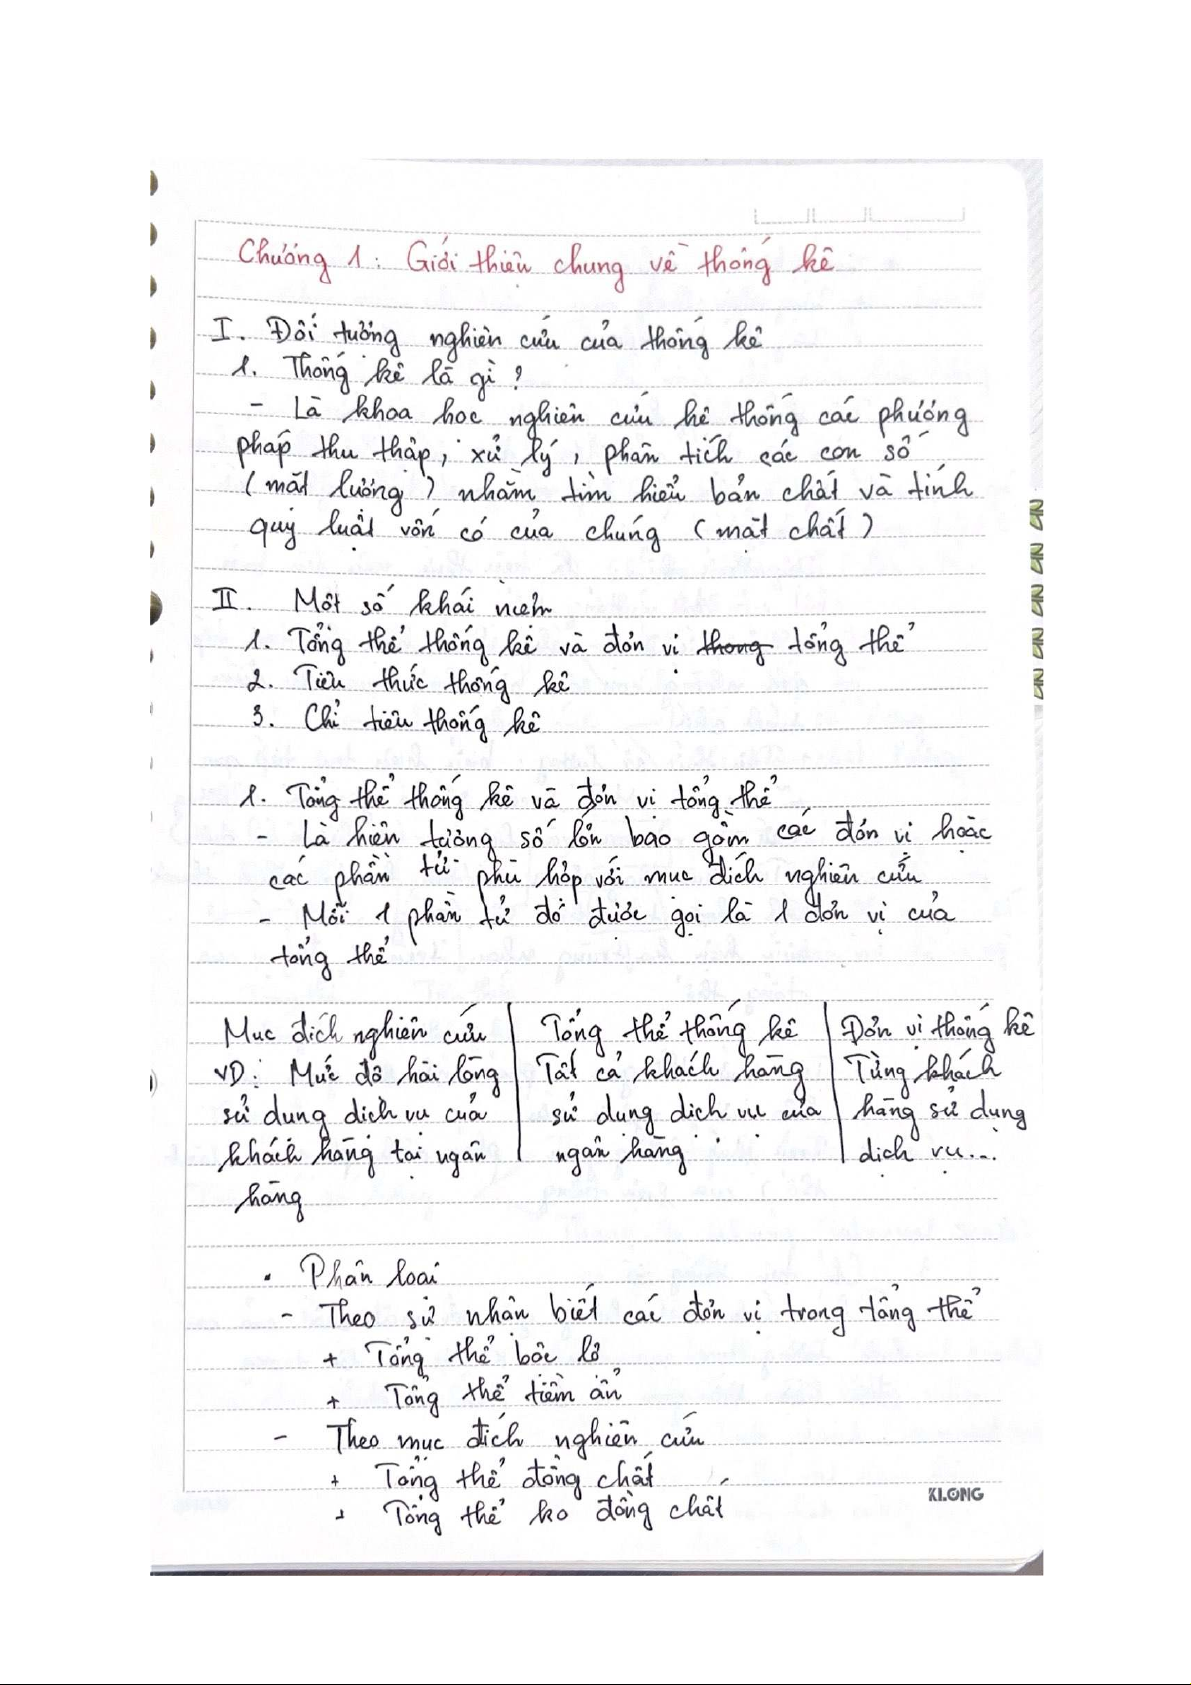 Chương 1: Giới thiệu chung về thống kê
I. Đối tượng nghiên cứu của thống kê
1. Thống kê là gì?
- Là khoa học nghiên cứu hệ thống các phương
pháp thu thập, xử lý, phân tích các con số
(mặt lượng) nhằm tìm hiểu bản chất và tính
quy luật vốn có của chúng (mặt chất)
II. Một số khái niệm
1. Tổng thể thống kê và đơn vị thong tổng thể
2. Tiêu thức thống kê
3. Chỉ tiêu thống kê
1. Tổng thể thống kê và đơn vị tổng thể
- Là hiện tượng số lớn bao gồm các đơn vị hoặc
các phần tử phù hợp với mục đích nghiên cứu
- Mỗi 1 phần tử đó được gọi là 1 đơn vị của
tổng thể
Mục đích nghiên cứu | Tổng thể thống kê | Đơn vị thống kê
VD: Mức độ hài lòng | Tất cả khách hàng | Từng khách
sử dụng dịch vụ của | sử dụng dịch vụ của | hàng sử dụng
khách hàng tại ngân | ngân hàng | dịch vụ...
hàng
• Phân loại
- Theo sự nhận biết các đơn vị trong tổng thể
+ Tổng thể bộc lộ
+ Tổng thể tiềm ẩn
- Theo mục đích nghiên cứu
+ Tổng thể đồng chất
+ Tổng thể ko đồng chất
KLONG